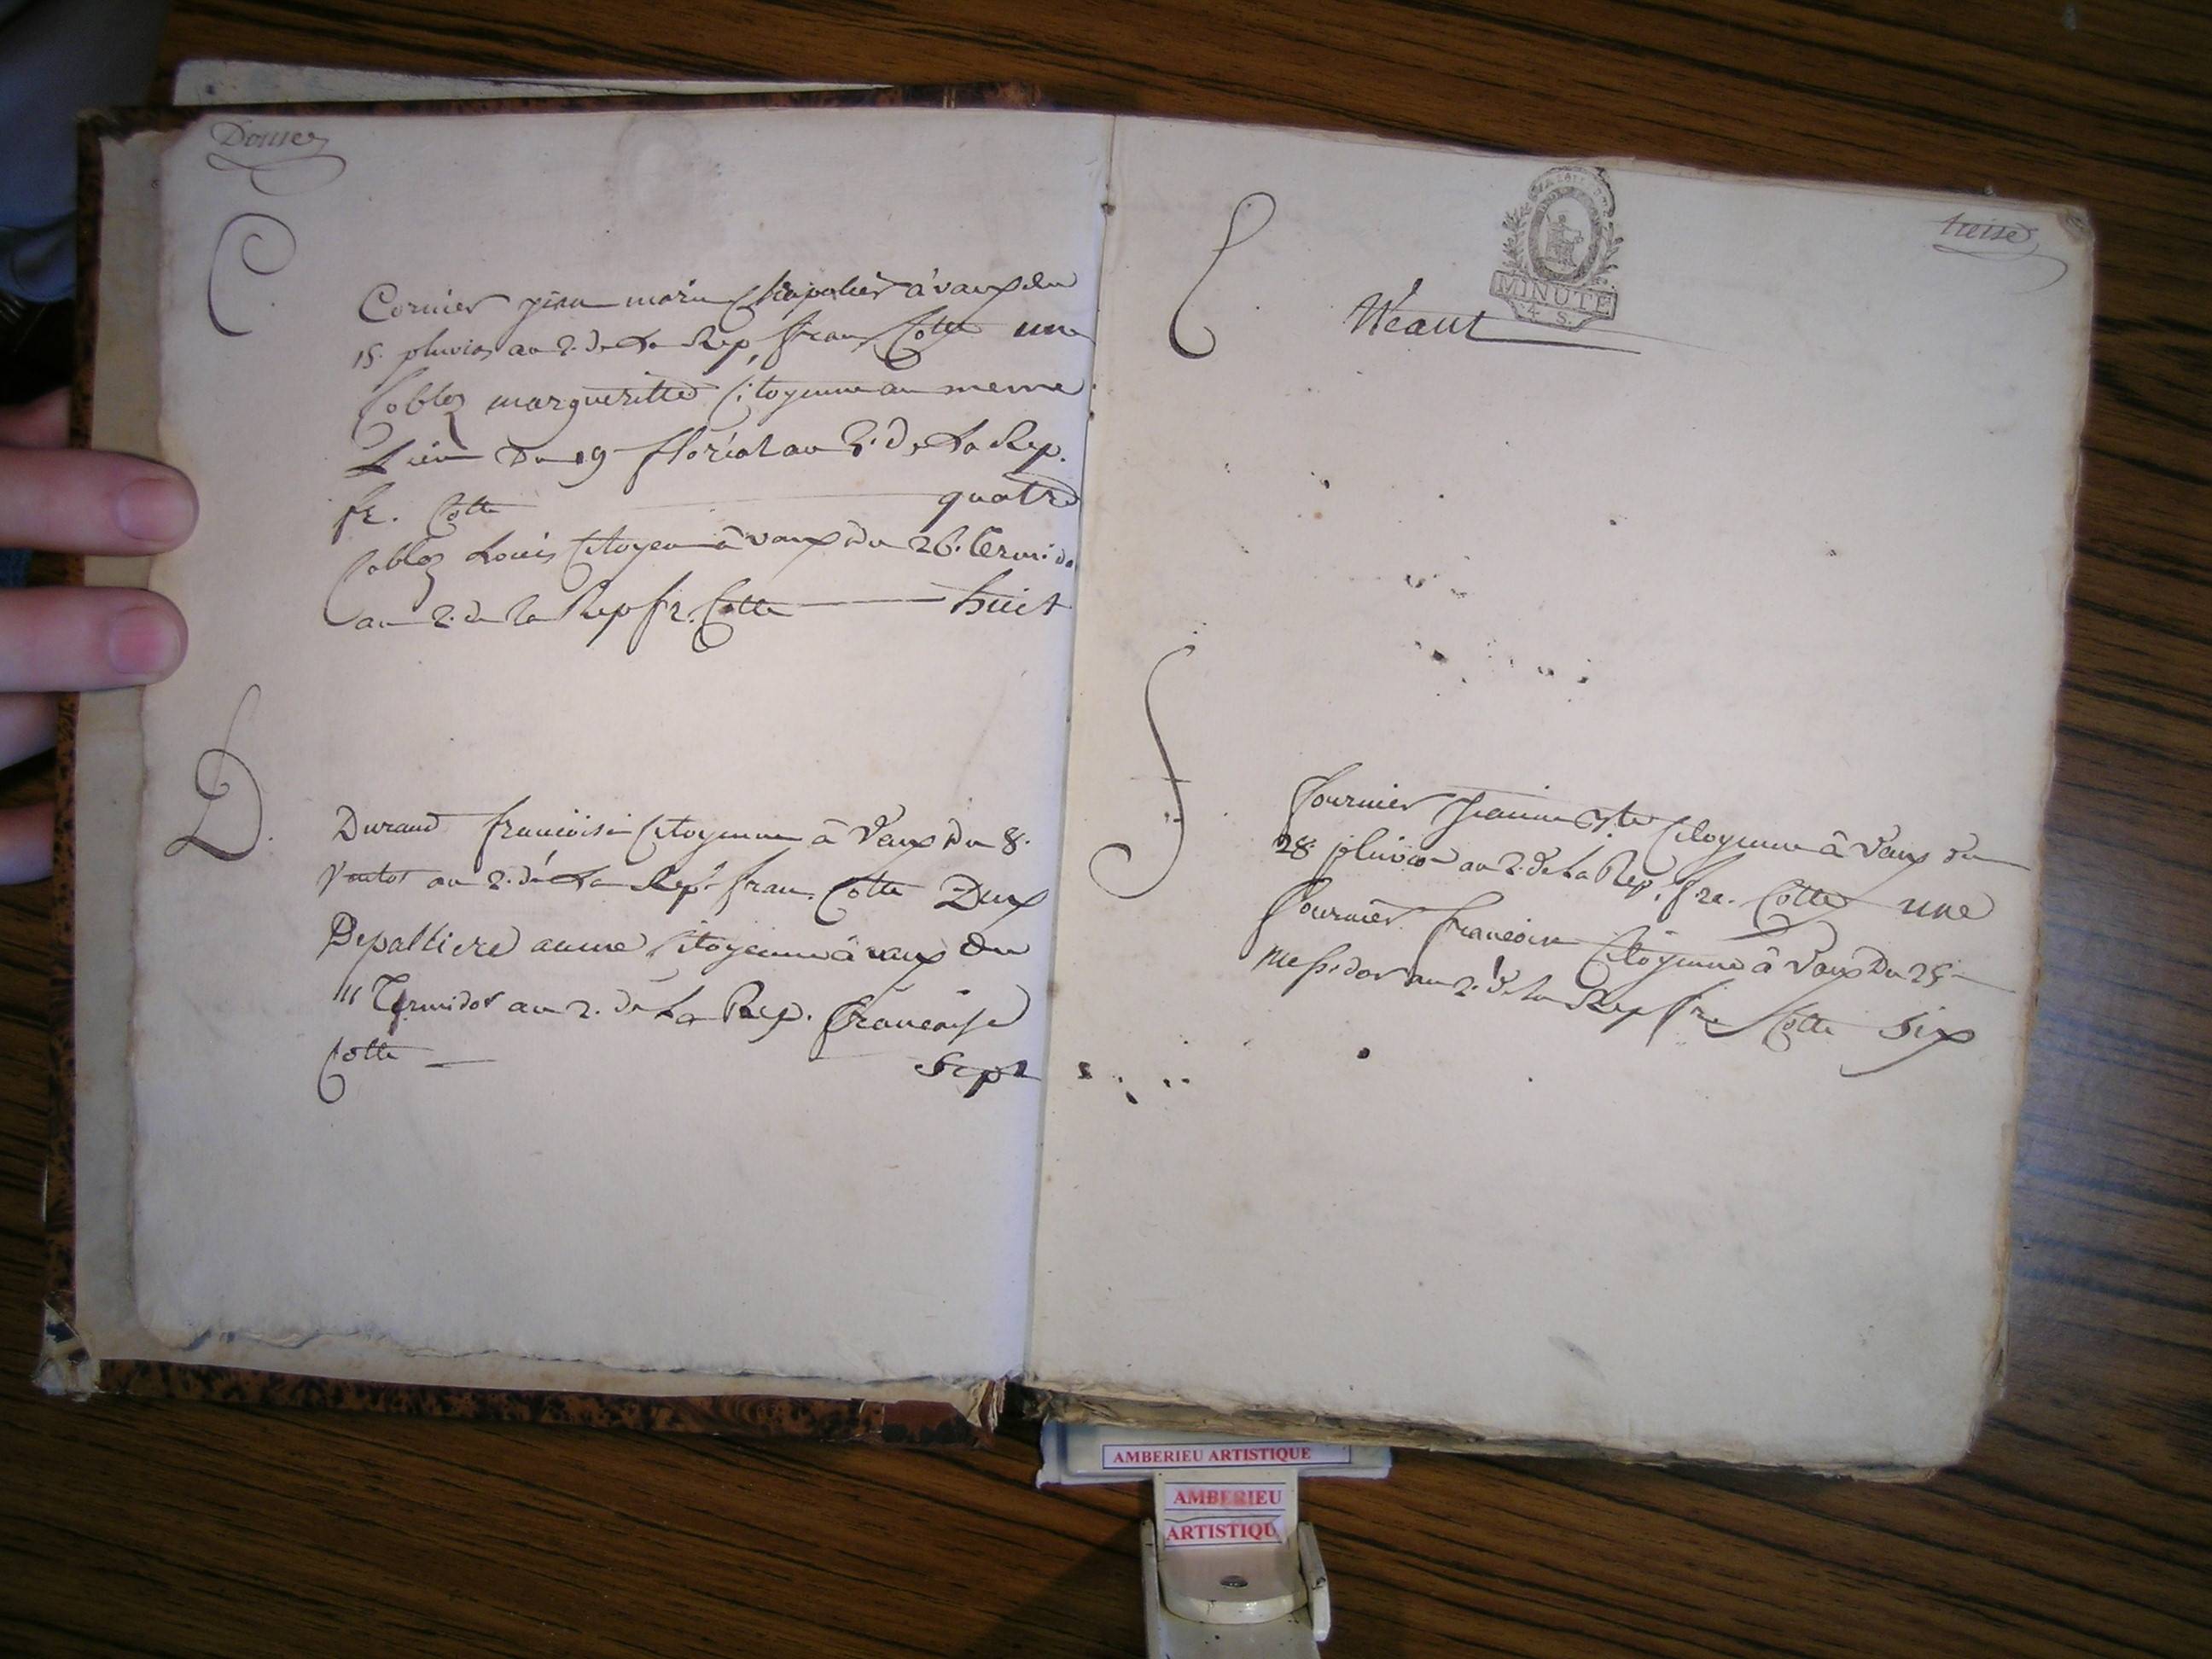 Douze
C
Cornier jean marie à vaux du
15. pluvios an 2. de La Rep. fran. Cotte une
Coblez margueritte Citoyenne au meme
Lieu Du 19 floréal an 2. de La Rep.
fr. Cotte quatre
Coblez Louis Citoyen à vaux du 26. Termido
an 2. de la Rep fr. Cotte huit
D.
Durand francoise Citoyenne à Vaux Du 8.
Ventos an 2. de La Rep. fran. Cotte Deux
Depalliere anne Citoyenne à vaux Du
11 Termidor an 2. de La Rep. francaise
Cotte Sept
treise
E
MINUTE
4. S.
Néant
f
fournier Jeanne Citoyenne à Vaux du
28. pluvios an 2. de La Rep. fre. Cotte une
fournier francoise Citoyenne à Vaux Du 25
Messidor an 2. de la Rep fr. Cotte Six
AMBERIEU ARTISTIQUE
AMBERIEU
ARTISTIQU